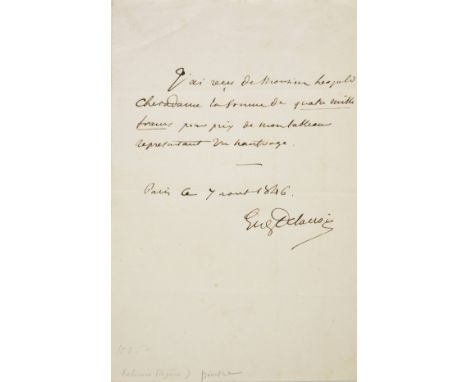 J'ai reçu de Monsieur Leopold
Cheradame la somme de quatre mille
francs pour prix de mon tableau
representant un naufrage.
Paris ce 7 aout 1846.
Eug Delacroix
peintre